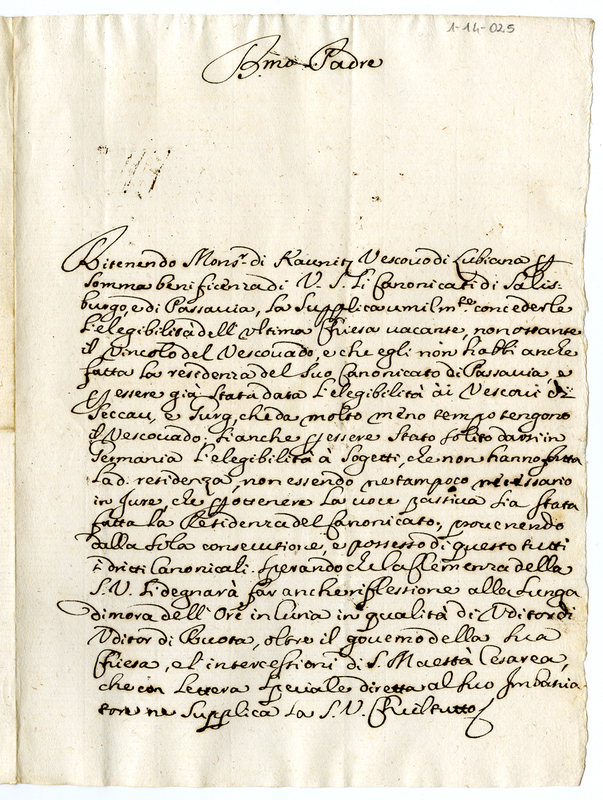 1-14-025
B.mo Padre
Ritenendo Mons.r di Kaunitz Vescovo di Lubiana p
somma beneficenza di V. S. li Canonicati di Salis-
burgo, e di Passavia, La Supplica umilm.te concederle
L'elegibilità dell'ultima Chiesa vacante, non ostante
il Vincolo del Vescovado, e che egli non habbi anche
fatta La residenza del Suo Canonicato di Passavia e
p essere già Stata data L'elegibilità ài Vescovi di
Seccau, e Gurg, che da molto meno tempo tengono
il Vescovado; Si anche p essere Stato Solito darsi in
Germania L'elegibilità à Sogetti, che non hanno fatta
La d. residenza, non essendo ne tampoco necessario
in Jure che p ottenere La voce passiva Sia Stata
fatta La Residenza del Canonicato, provenendo
dalla Sola consecutione, e possesso di questo tutti
i dritti Canonicali. Sperando che la Clemenza della
S. V. Si degnarà far anche riflessione alla Lunga
dimora dell' Ore in Curia in qualità di Uditor di
Uditor di Ruota, oltre il governo della Sua
Chiesa, e l'intercessioni di S. Maestà Cesarea,
che con Lettera Speciale diretta al Suo Imbascia-
tore ne Supplica La S. V. Che il tutto